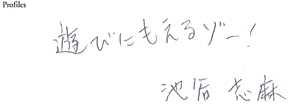 Profiles
遊びにもえるゾー!
池居 志麻